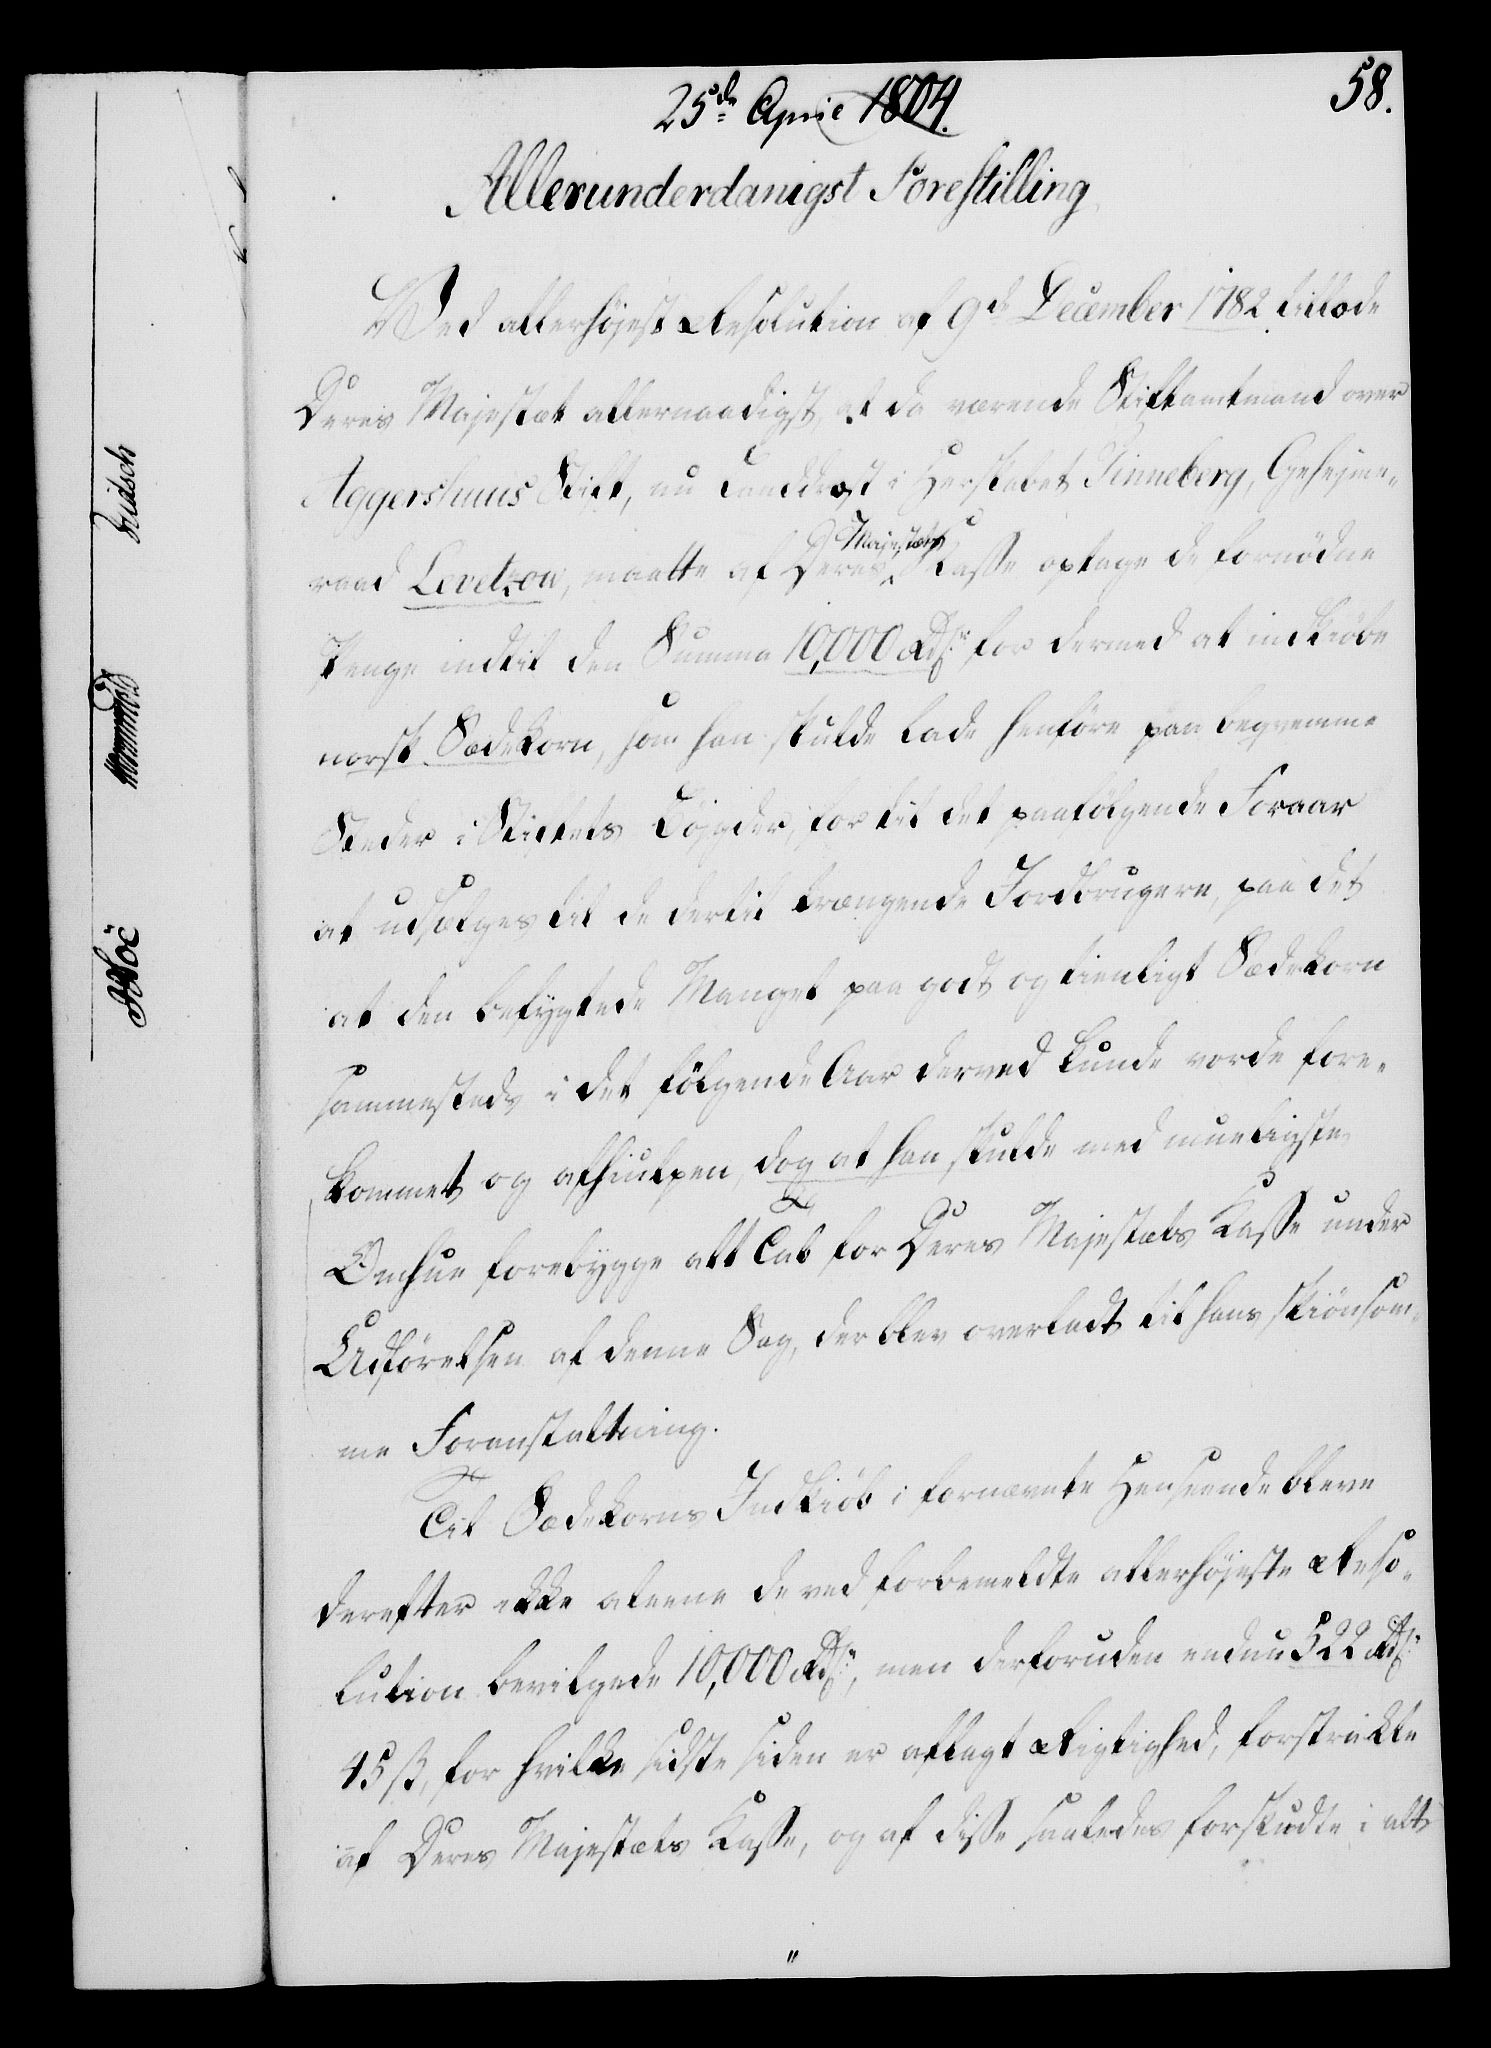 58.
25de April 1804.
Allerunderdanigst Forestilling
Ved allerhøjest Resolution af 9de December 1782 tillode
Deres Majestæt allernaadigst, at da værende Stiftamtmand over
Aggershuus Stift, nu Landdrost i Herskabet Pinneberg, Geheime-
raad Levetzow, maatte af Deres Majestæts Kasse optage de fornødne
Penge indtil den Summa 10,000 Rdlr for dermed at indkiöbe
norsk Sædekorn, som han skulde lade henføre paa beqvemme
Steder i Stiftets Bøjgder, for til det paafölgende Foraar
at udsælges til de dertil trængende Jordbrugere, paa det
at den befrygtede Mangel paa godt og tienligt Sædekorn
sammesteds i det fölgende Aar derved kunde vorde fore-
kommet og afhiulpen, dog at han skulde med mueligste
Omhue forebygge alt Tab for Deres Majestæts Kasse under
Udførelsen af denne Sag, der blev overladt til hans skiönsom-
me Foranstaltning.
Til Sædekorns Indkiöb i fornævnte Henseende bleve
derefter ikke alene de ved forbemeldte allerhøjeste Reso-
lution bevilgede 10,000 Rdlr, men derforuden endnu 522 Rdlr
45 ß, for hvilke sidste siden er aflagt Rigtighed, forstrakte
af Deres Majestæts Kasse, og af disse saaledes forskudte i alt
"